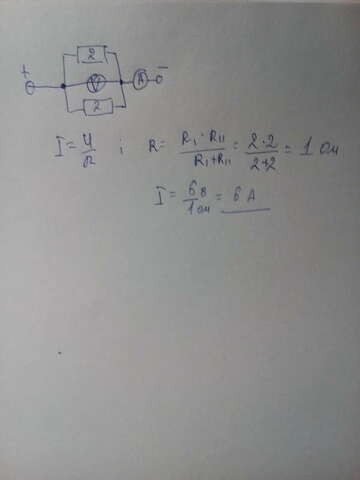 2
+ V A −
2
I = U/R ; R = R₁·R₁₁/R₁+R₁₁ = 2·2/2+2 = 1 Ом
I = 6 В/1 Ом = 6 А